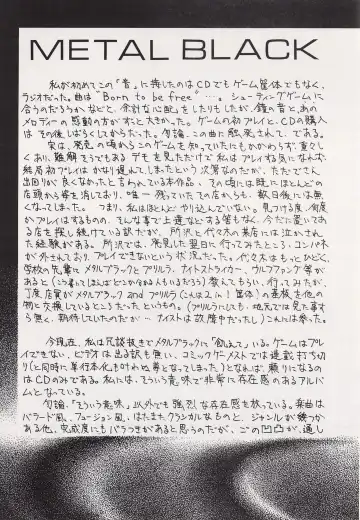 METAL BLACK
私が初めてこの「音」に接したのはCDでもゲーム筐体でもなく、
ラジオだった。曲は"Born to be free"…。シューティングゲームに
合うのだろうか、などと、余計な心配をしたりもしたが、鐘の音と、あの
メロディーの感動の方がずっと大きかった。ゲームの初プレイと、CDの購入
はその後しばらくしてからだった。勿論、この曲に触発されて、である。
実は、発売の頃からこのゲームを知っていたにもかかわらず、重々し
くあり、難解そうでもあるデモを見ただけで私はプレイする気になれず、
結局初プレイはかなり遅れてしまったという次第なのだが、ただでさえ
出回りが良くなかったと言われている本作品、その頃には既にほとんどの
店頭から姿を消しており、唯一残っていたその店からも、数日後には無
くなってしまった。つまり、私はほとんどやり込んでいない。見つける度、何度
かプレイはするものの、そんな事で上達などする筈もなく、今だに置いてあ
る店を探し続けている訳だが、所沢と代々木の某店には泣かされ
た経験がある。所沢では、発見した翌日に行ってみたところ、コンパネ
が外されており、プレイできないという状況だった。代々木はもっとひどく、
学校の先輩にメタルブラックとプリルラ、ナイトストライカー、ウルフファング等が
あると(こう書いてしまえばどこか分かる人もいるだろう)教えてもらい、行ってみたが、
丁度店員がメタルブラック and プリルラ(これは2in1筐体)の基板を他の
物に交換しているところだったというもの。(プリルラにしても、地元では見た事す
ら無く、期待していたのだが…ナイストは故障中だったし)これには参った。
今現在、私は冗談抜きでメタルブラックに「飢えて」いる。ゲームはプレ
イできない、ビデオは出る訳も無い、コミックゲーメストでは連載打ち切
り(と同時に単行本化も叶わぬ夢となってしまった)となれば、頼りになるの
はCDのみである。私には、そういう意味で非常に存在感のあるアルバ
ムとなっている。
勿論、「そういう意味」以外でも強烈な存在感を放っている。楽曲は
バラード風、フュージョン風、はたまたクラシカルなものと、ジャンルが幾つか
ある他、完成度にもバラつきがあると思うのだが、この凹凸が、通し